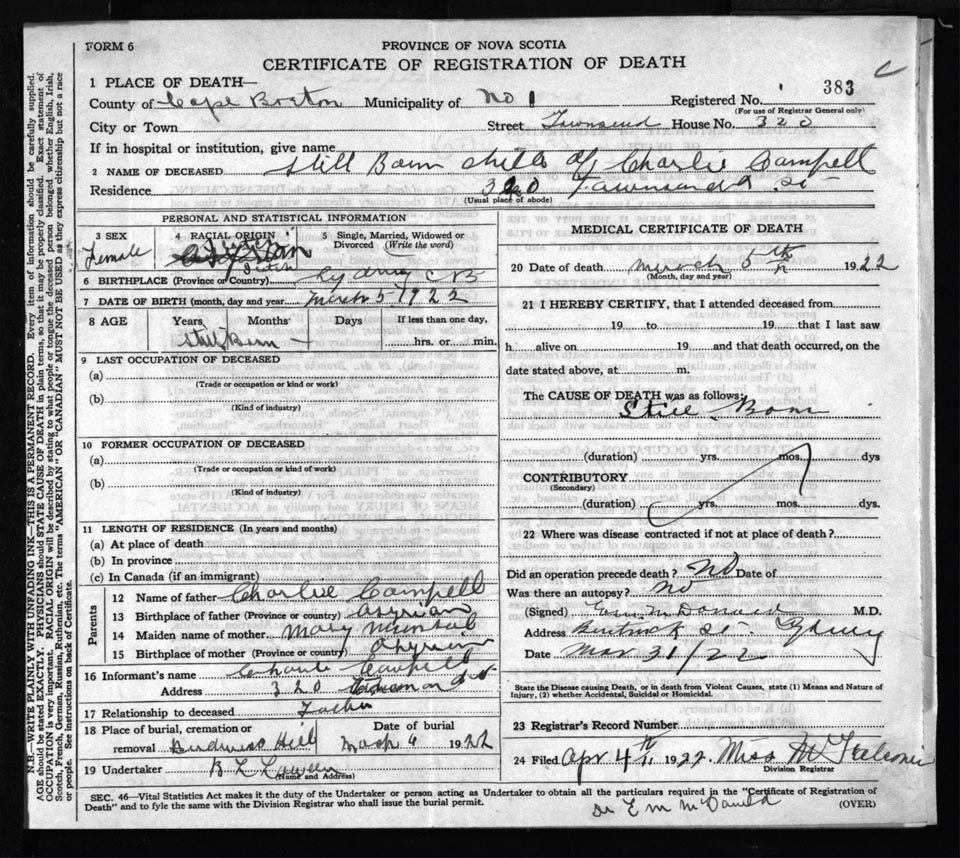 FORM 6
PROVINCE OF NOVA SCOTIA
CERTIFICATE OF REGISTRATION OF DEATH
1 PLACE OF DEATH—
383
County of Cape Breton Municipality of No 1 Registered No.
(For use of Registrar General only)
City or Town Street Townsend House No. 320
If in hospital or institution, give name
2 NAME OF DECEASED Still Born child of Charlie Campell
Residence 320 Townsend St
(Usual place of abode)
PERSONAL AND STATISTICAL INFORMATION
3 SEX 4 RACIAL ORIGIN 5 Single, Married, Widowed or Divorced (Write the word)
Female
6 BIRTHPLACE (Province or Country) Sydney C B
7 DATE OF BIRTH (month, day and year) March 5 1922
8 AGE Years Months Days If less than one day,
Still Born hrs. or min.
9 LAST OCCUPATION OF DECEASED
(a)
(Trade or occupation or kind or work)
(b)
(Kind of industry)
10 FORMER OCCUPATION OF DECEASED
(a)
(Trade or occupation or kind or work)
(b)
(Kind of industry)
11 LENGTH OF RESIDENCE (In years and months)
(a) At place of death
(b) In province
(c) In Canada (if an immigrant)
Parents
12 Name of father Charlie Campell
13 Birthplace of father (Province or country)
14 Maiden name of mother Mary
15 Birthplace of mother (Province or country)
16 Informant's name Charlie Campell
Address 320
17 Relationship to deceased Father
18 Place of burial, cremation or removal Date of burial
Hill March 4 1922
19 Undertaker
(Name and Address)
MEDICAL CERTIFICATE OF DEATH
20 Date of death March 5th 1922
(Month, day and year)
21 I HEREBY CERTIFY, that I attended deceased from
19 to 19 that I last saw
h alive on 19 and that death occurred, on the
date stated above, at m.
The CAUSE OF DEATH was as follows:
Still Born
(duration) yrs. mos. dys
CONTRIBUTORY
(Secondary)
(duration) yrs. mos. dys.
22 Where was disease contracted if not at place of death?
Did an operation precede death? No Date of
Was there an autopsy? No
(Signed) McDonald M.D.
Address St. Sydney
Date Mar 31/22
State the Disease causing Death, or in death from Violent Causes, state (1) Means and Nature of Injury, (2) whether Accidental, Suicidal or Homicidal.
23 Registrar's Record Number
24 Filed Apr 4th 1922 Miss
Division Registrar
SEC. 46—Vital Statistics Act makes it the duty of the Undertaker or person acting as Undertaker to obtain all the particulars required in the "Certificate of Registration of
Death" and to fyle the same with the Division Registrar who shall issue the burial permit.
(OVER)
Dr E M McDonald
N.B.—WRITE PLAINLY WITH UNFADING INK—THIS IS A PERMANENT RECORD. Every item of information should be carefully supplied.
AGE should be stated EXACTLY. PHYSICIANS should STATE CAUSE OF DEATH in plain terms, so that it may be properly classified. Exact statement of
OCCUPATION is very important. RACIAL ORIGIN will be described by stating to what people or tongue the deceased person belonged whether English, Irish,
Scotch, French, German, Russian, Ruthenian, etc. The terms "AMERICAN" OR "CANADIAN" MUST NOT BE USED as they express citizenship but not a race
or people. See instructions on back of Certificate.